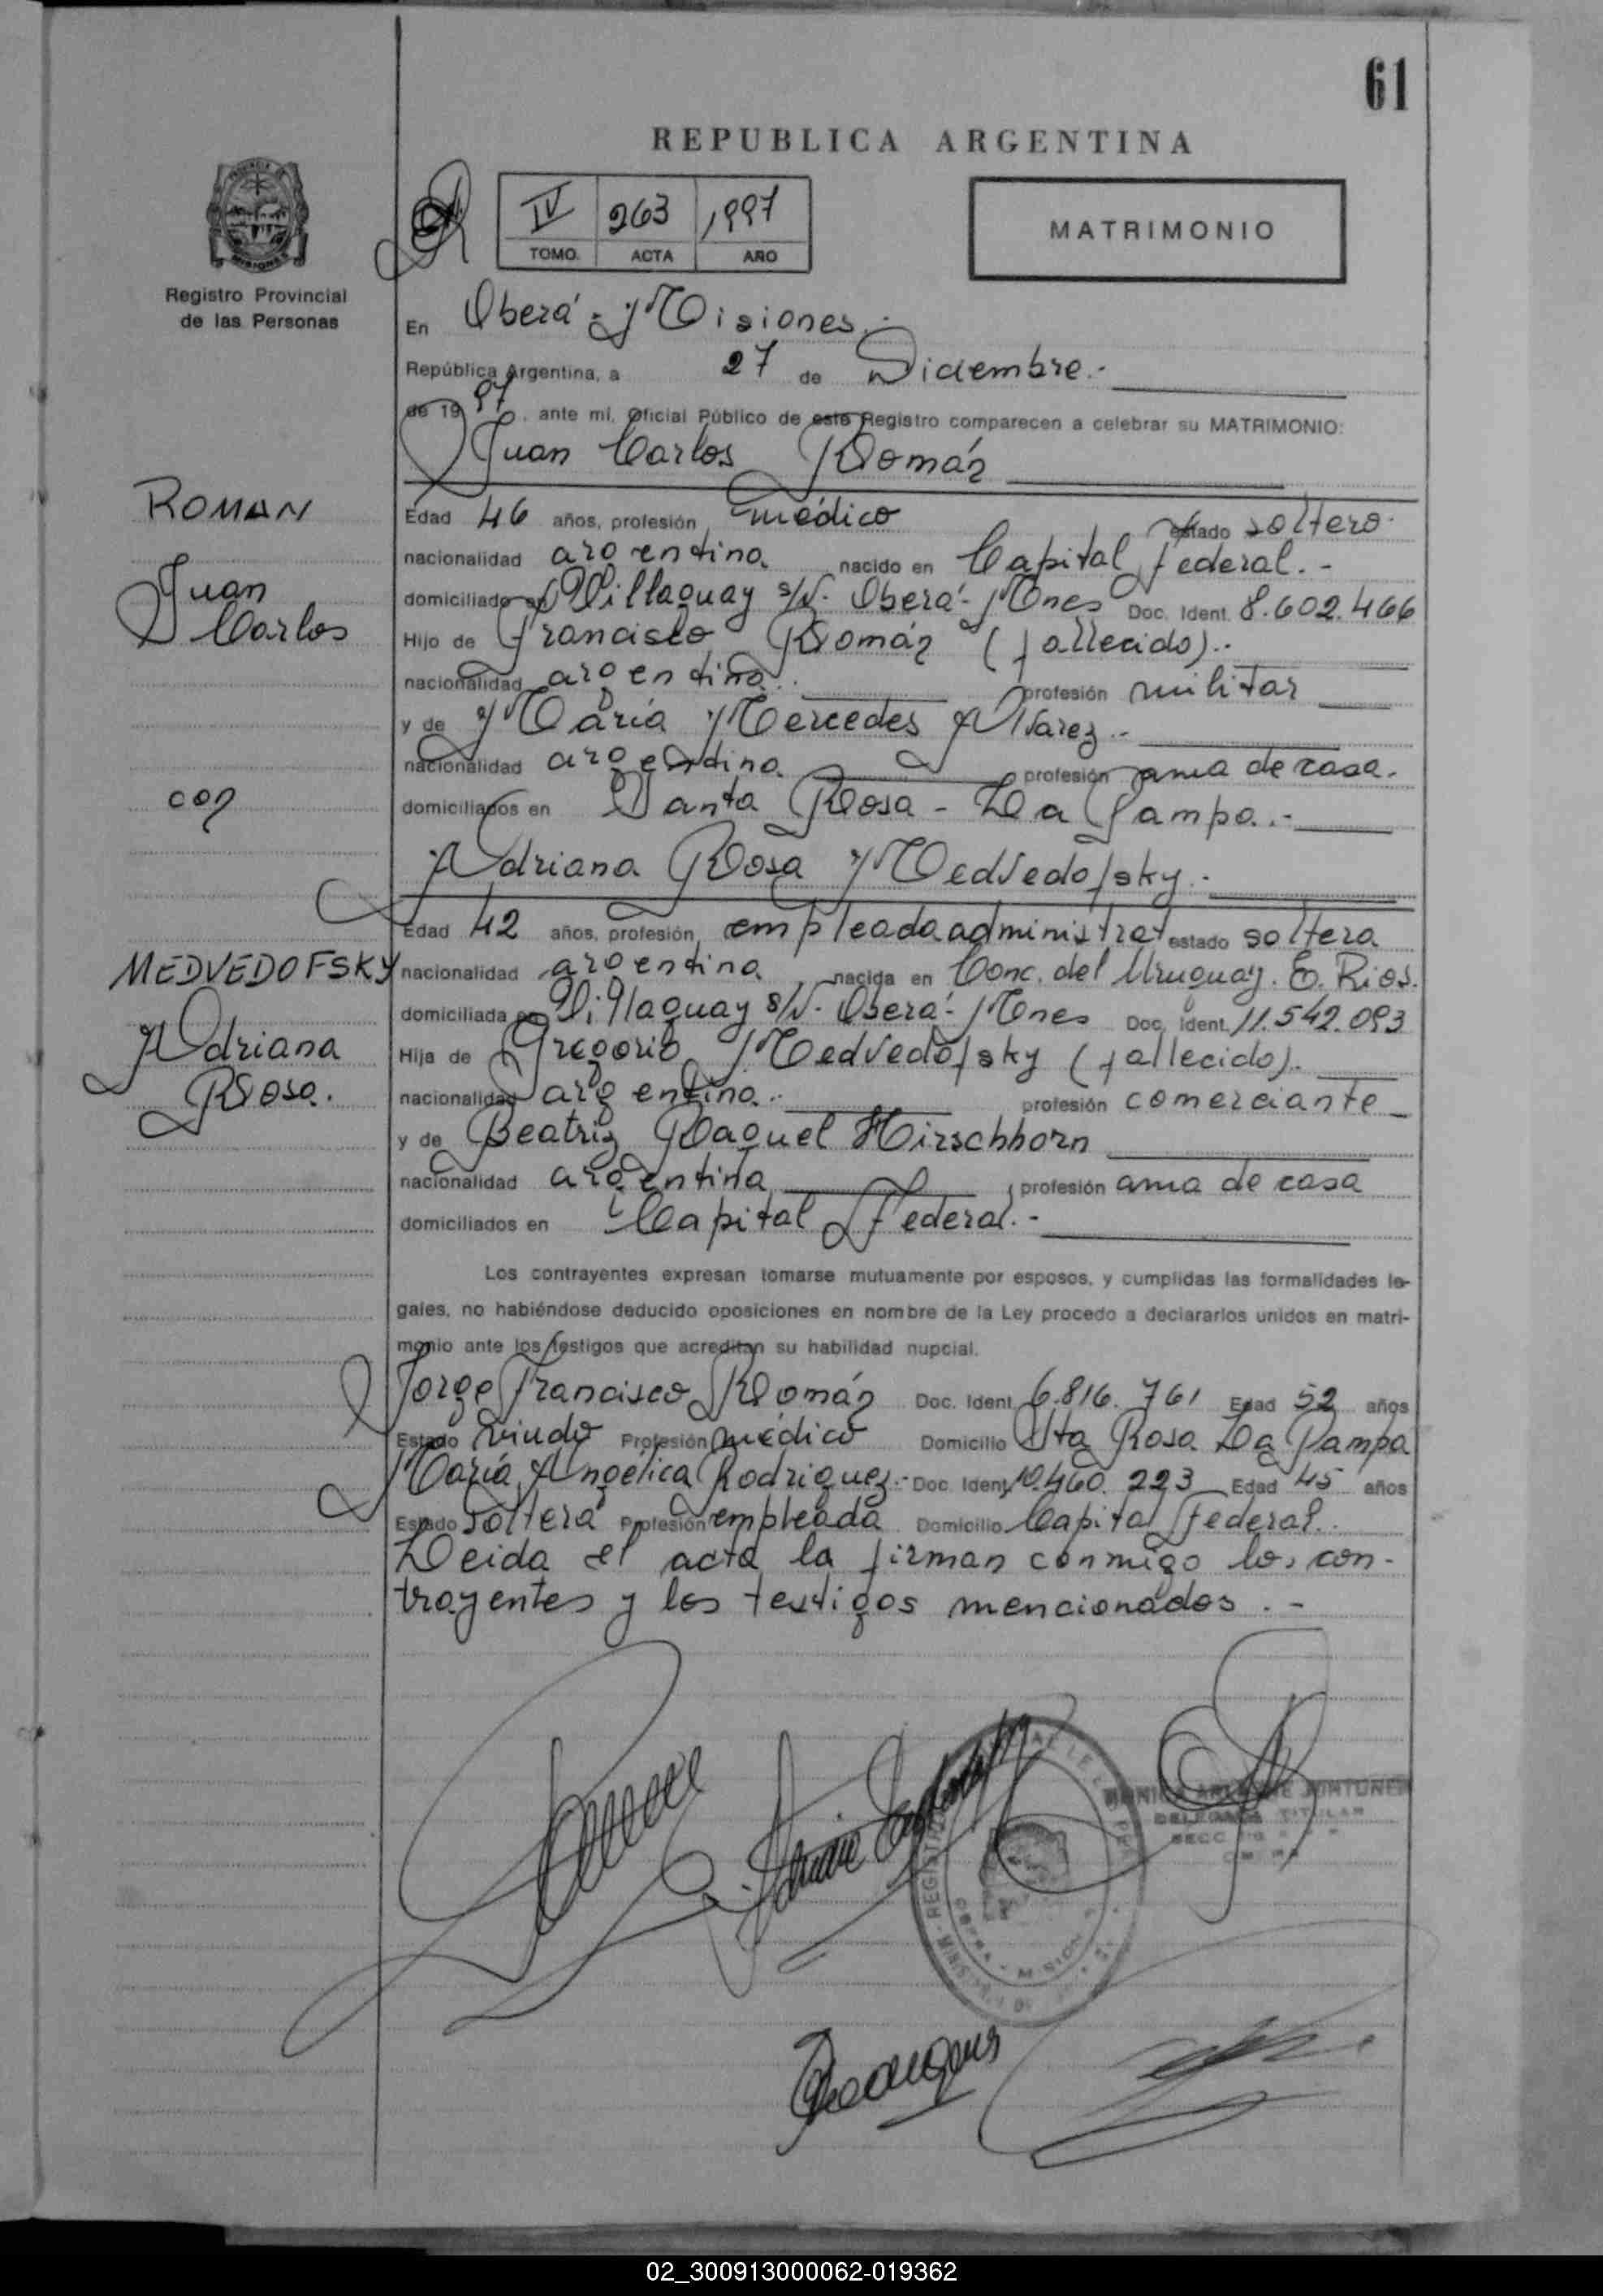 61
REPUBLICA ARGENTINA
IV 263 1997
TOMO. ACTA AÑO
MATRIMONIO
Registro Provincial
de las Personas
En Oberá - Misiones.-
República Argentina, a 27 de Diciembre.-
de 1997, ante mí, Oficial Público de este Registro comparecen a celebrar su MATRIMONIO:
Juan Carlos Román
ROMAN
Juan
Carlos
Edad 46 años, profesión médico estado soltero.
nacionalidad argentina nacido en Capital Federal.-
domiciliado en Villaguay s/N. Oberá - Mnes Doc. Ident. 8.602.466
Hijo de Francisco Román (fallecido).-
nacionalidad argentina.- profesión militar
y de María Mercedes Alvarez.-
nacionalidad argentina profesión ama de casa.
domiciliados en Santa Rosa - La Pampa.-
con
Adriana Rosa Medvedofsky.-
MEDVEDOFSKY
Adriana
Rosa.
Edad 42 años, profesión empleada administrat estado soltera
nacionalidad argentina nacida en Conc. del Uruguay. E. Rios.
domiciliada en Villaguay s/N. Oberá - Mnes Doc. Ident. 11.542.093
Hija de Gregorio Medvedofsky (fallecido).
nacionalidad argentina.- profesión comerciante
y de Beatriz Raquel Hirschhorn
nacionalidad argentina profesión ama de casa
domiciliados en Capital Federal.-
Los contrayentes expresan tomarse mutuamente por esposos, y cumplidas las formalidades le-
gales, no habiéndose deducido oposiciones en nombre de la Ley procedo a declararlos unidos en matri-
monio ante los testigos que acreditan su habilidad nupcial.
Jorge Francisco Román Doc. Ident. 6.816.761 Edad 52 años
Estado viudo Profesión médico Domicilio Sta Rosa La Pampa
María Angélica Rodriguez.- Doc. Ident. 10.460.223 Edad 45 años
Estado soltera Profesión empleada Domicilio Capital Federal.
Leida el acta la firman conmigo los con-
trayentes y los testigos mencionados.-
DELEGADA TITULAR
02_300913000062-019362